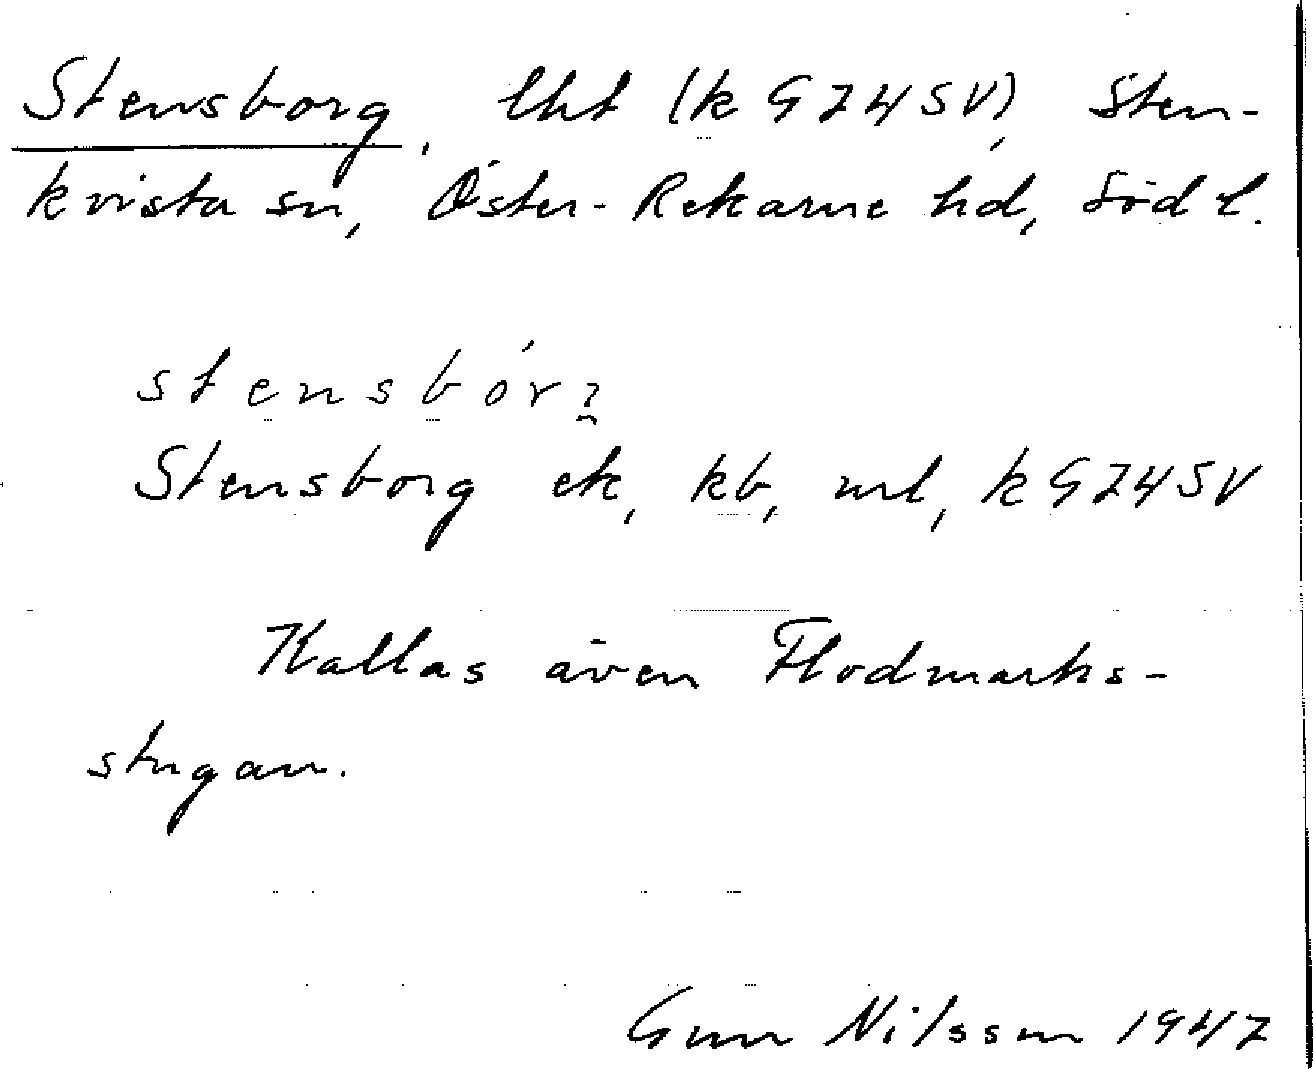 Stensborg, lht (k G74SV), Sten-
kvista sn, Öster-Rekarne hd, Söd l.
stensbór?
Stensborg ek, kb, ml, k G74SV
Kallas även Flodmarks-
stugan.
Gun Nilsson 1947